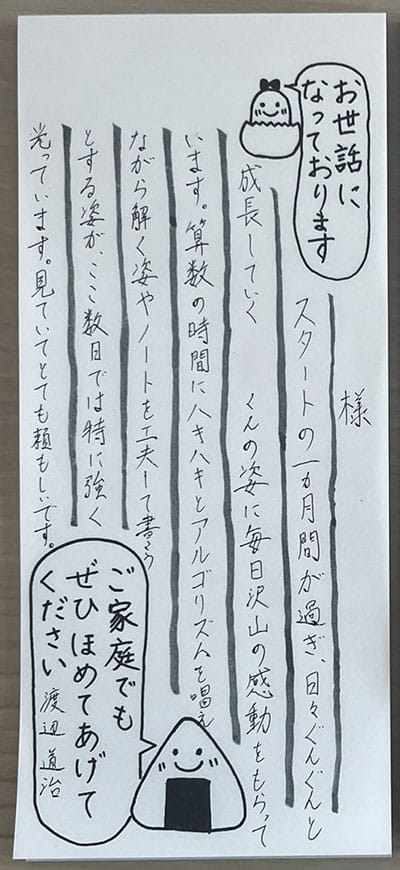 お世話に
なっております
様
スタートの一ヵ月間が過ぎ、日々ぐんぐんと
成長していく くんの姿に毎日沢山の感動をもらって
います。算数の時間にハキハキとアルゴリズムを唱え
ながら解く姿やノートを工夫して書こう
とする姿が、ここ数日では特に強く
光っています。見ていてとても頼もしいです。
ご家庭でも
ぜひほめてあげて
ください
渡辺道治